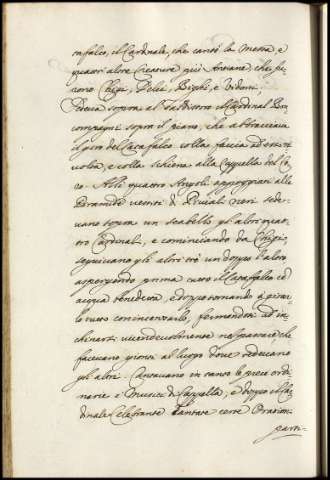 tafalco, il Cardinale, che cantò la Messa, e
quattro altre Creature più Anziane, che fu-
rono Chigi, Delci, Bighi, e Vidoni,
Sedeva sopra al Faldistoro il Cardinal Bon
compagni sopra il piano, che abbracciava
il giro del Catafalco colla faccia ad essa ri
volta, e colla schiena alla Cappella del Co
ro. Alli quattro Angoli appoggiati alle
Piramidi vestiti di Piviali neri sede-
vano sopra un scabello gl'altri quat
tro Cardinali, e cominciando da Chigi,
seguivano gli altri trè un doppo l'altro
aspergendo prima tutto il Catafalco co
acqua benedetta, e doppo tornando à girar
lo tutto con incensarlo, fermandosi ed in
chinarsi vicendevolmente nel passare, che
facevano giunti al luogo dove sedevano
gl'altri. Cantavano in tanto le preci ordi
narie i Musici di Cappella, e doppo il Car
dinale Celebrante cantate certe Orazion
parti-